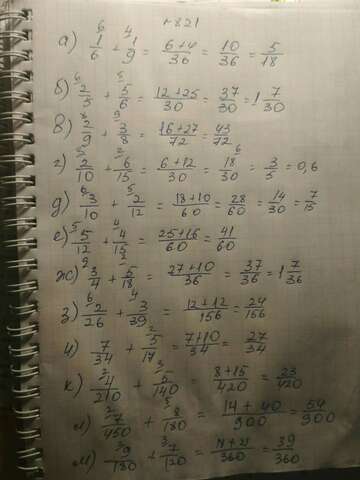 №821
а) 1/6 + 1/9 = 6+4/36 = 10/36 = 5/18
б) 2/5 + 5/6 = 12+25/30 = 37/30 = 1 7/30
в) 2/9 + 3/8 = 16+27/72 = 43/72
г) 2/10 + 6/15 = 6+12/30 = 18/30 = 3/5 = 0,6
д) 3/10 + 2/12 = 18+10/60 = 28/60 = 14/30 = 7/15
е) 5/12 + 4/15 = 25+16/60 = 41/60
ж) 3/4 + 5/18 = 27+10/36 = 37/36 = 1 7/36
з) 2/26 + 3/39 = 12+12/156 = 24/156
и) 7/34 + 5/17 = 7+10/34 = 27/34
к) 4/210 + 5/140 = 8+15/420 = 23/420
л) 7/450 + 8/180 = 14+40/900 = 54/900
м) 9/180 + 7/120 = 360 = 39/360